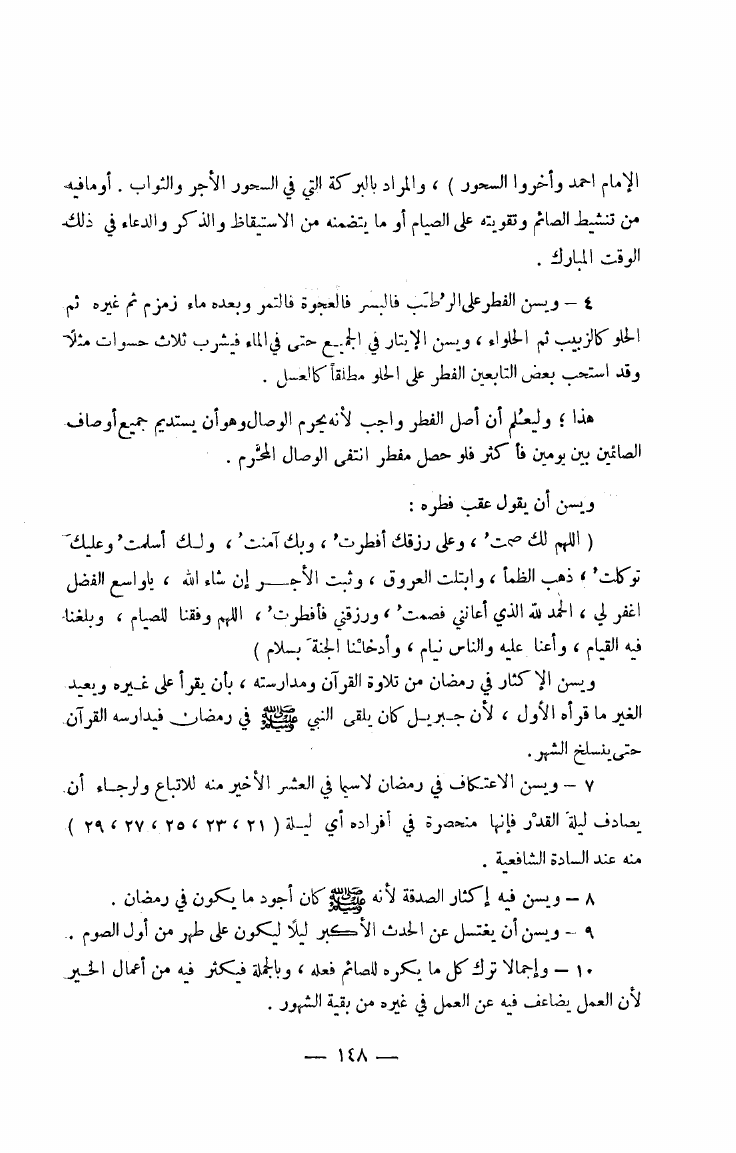 الإمام احمد وأخروا السحور ) ، والمراد بالبركة التي في السحور الأجر والثواب . أومافيه
من تنشيط الصائم وتقويته على الصيام أو ما يتضمنه من الاستيقاظ والذكر والدعاء في ذلك
الوقت المبارك .
٤ – ويسن الفطر على الرُطَب فالبُسر فالعجوة فالتمر وبعده ماء زمزم ثم غيره ثم
الحلو كالزبيب ثم الحلواء ، ويسن الإيتار في الجميع حتى في الماء فيشرب ثلاث حسوات مثلاً
وقد استحب بعض التابعين الفطر على الحلو مطلقاً كالعسل .
هذا ؛ وليعُلم أن أصل الفطر واجب لأنه يحرم الوصال وهو أن يستديم جميع أوصاف
الصائمين بين يومين فأكثر فلو حصل مفطر انتفى الوصال المحَّرم .
ويسن أن يقول عقب فطره :
( اللهم لك صمتُ ، وعلى رزقك أفطرتُ ، وبك آمنتُ ، ولك أسلمتُ وعليك
توكلتُ ، ذهب الظمأ ، وابتلت العروق ، وثبت الأجر إن شاء الله ، ياواسع الفضل
اغفر لي ، الحمد لله الذي أعانني فصمتُ ، ورزقني فأفطرتُ ، اللهم وفقنا للصيام ، وبلغنا
فيه القيام ، وأعنا عليه والناس نيام ، وأدخلنا الجنةَ بسلام )
ويسن الإكثار في رمضان من تلاوة القرآن ومدارسته ، بأن يقرأ على غيره ويعيد
الغير ما قرأه الأول ، لأن جبريل كان يلقى النبي ﷺ في رمضان فيدارسه القرآن
حتى ينسلخ الشهر .
٧ – ويسن الاعتكاف في رمضان لاسيما في العشر الأخير منه للاتباع ولرجاء أن
يصادف ليلةَ القدْر فإنها منحصرة في أفراده أي ليلة ( ٢١ ، ٢٣ ، ٢٥ ، ٢٧ ، ٢٩ )
منه عند السادة الشافعية .
٨ – ويسن فيه إكثار الصدقة لأنه ﷺ كان أجود ما يكون في رمضان .
٩ – ويسن أن يغتسل عن الحدث الأكبر ليلًا ليكون على طهر من أول الصوم .
١٠ – وإجمالا ترك كل ما يكره للصائم فعله ، وبالجملة فيكثر فيه من أعمال الخير
لأن العمل يضاعف فيه عن العمل في غيره من بقية الشهور .
— ١٤٨ —